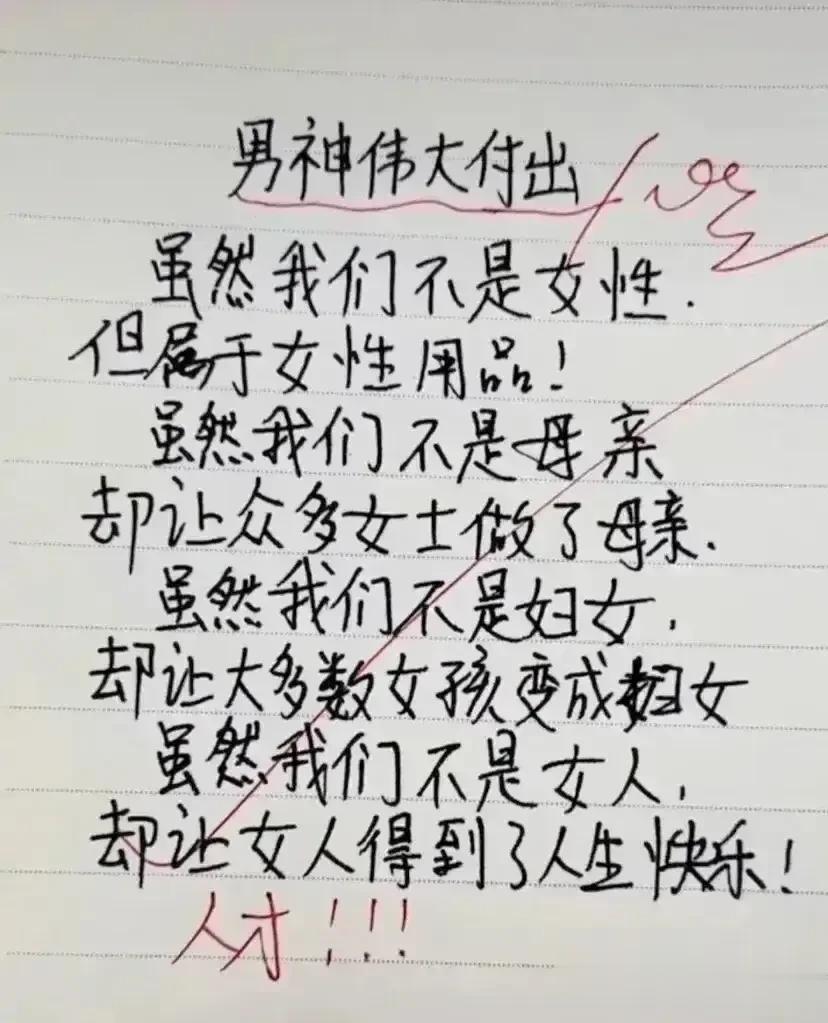 男神伟大付出
虽然我们不是女性.
但属于女性用品!
虽然我们不是母亲
却让众多女士做了母亲.
虽然我们不是妇女.
却让大多数女孩变成妇女
虽然我们不是女人.
却让女人得到了人生快乐!
人才!!!